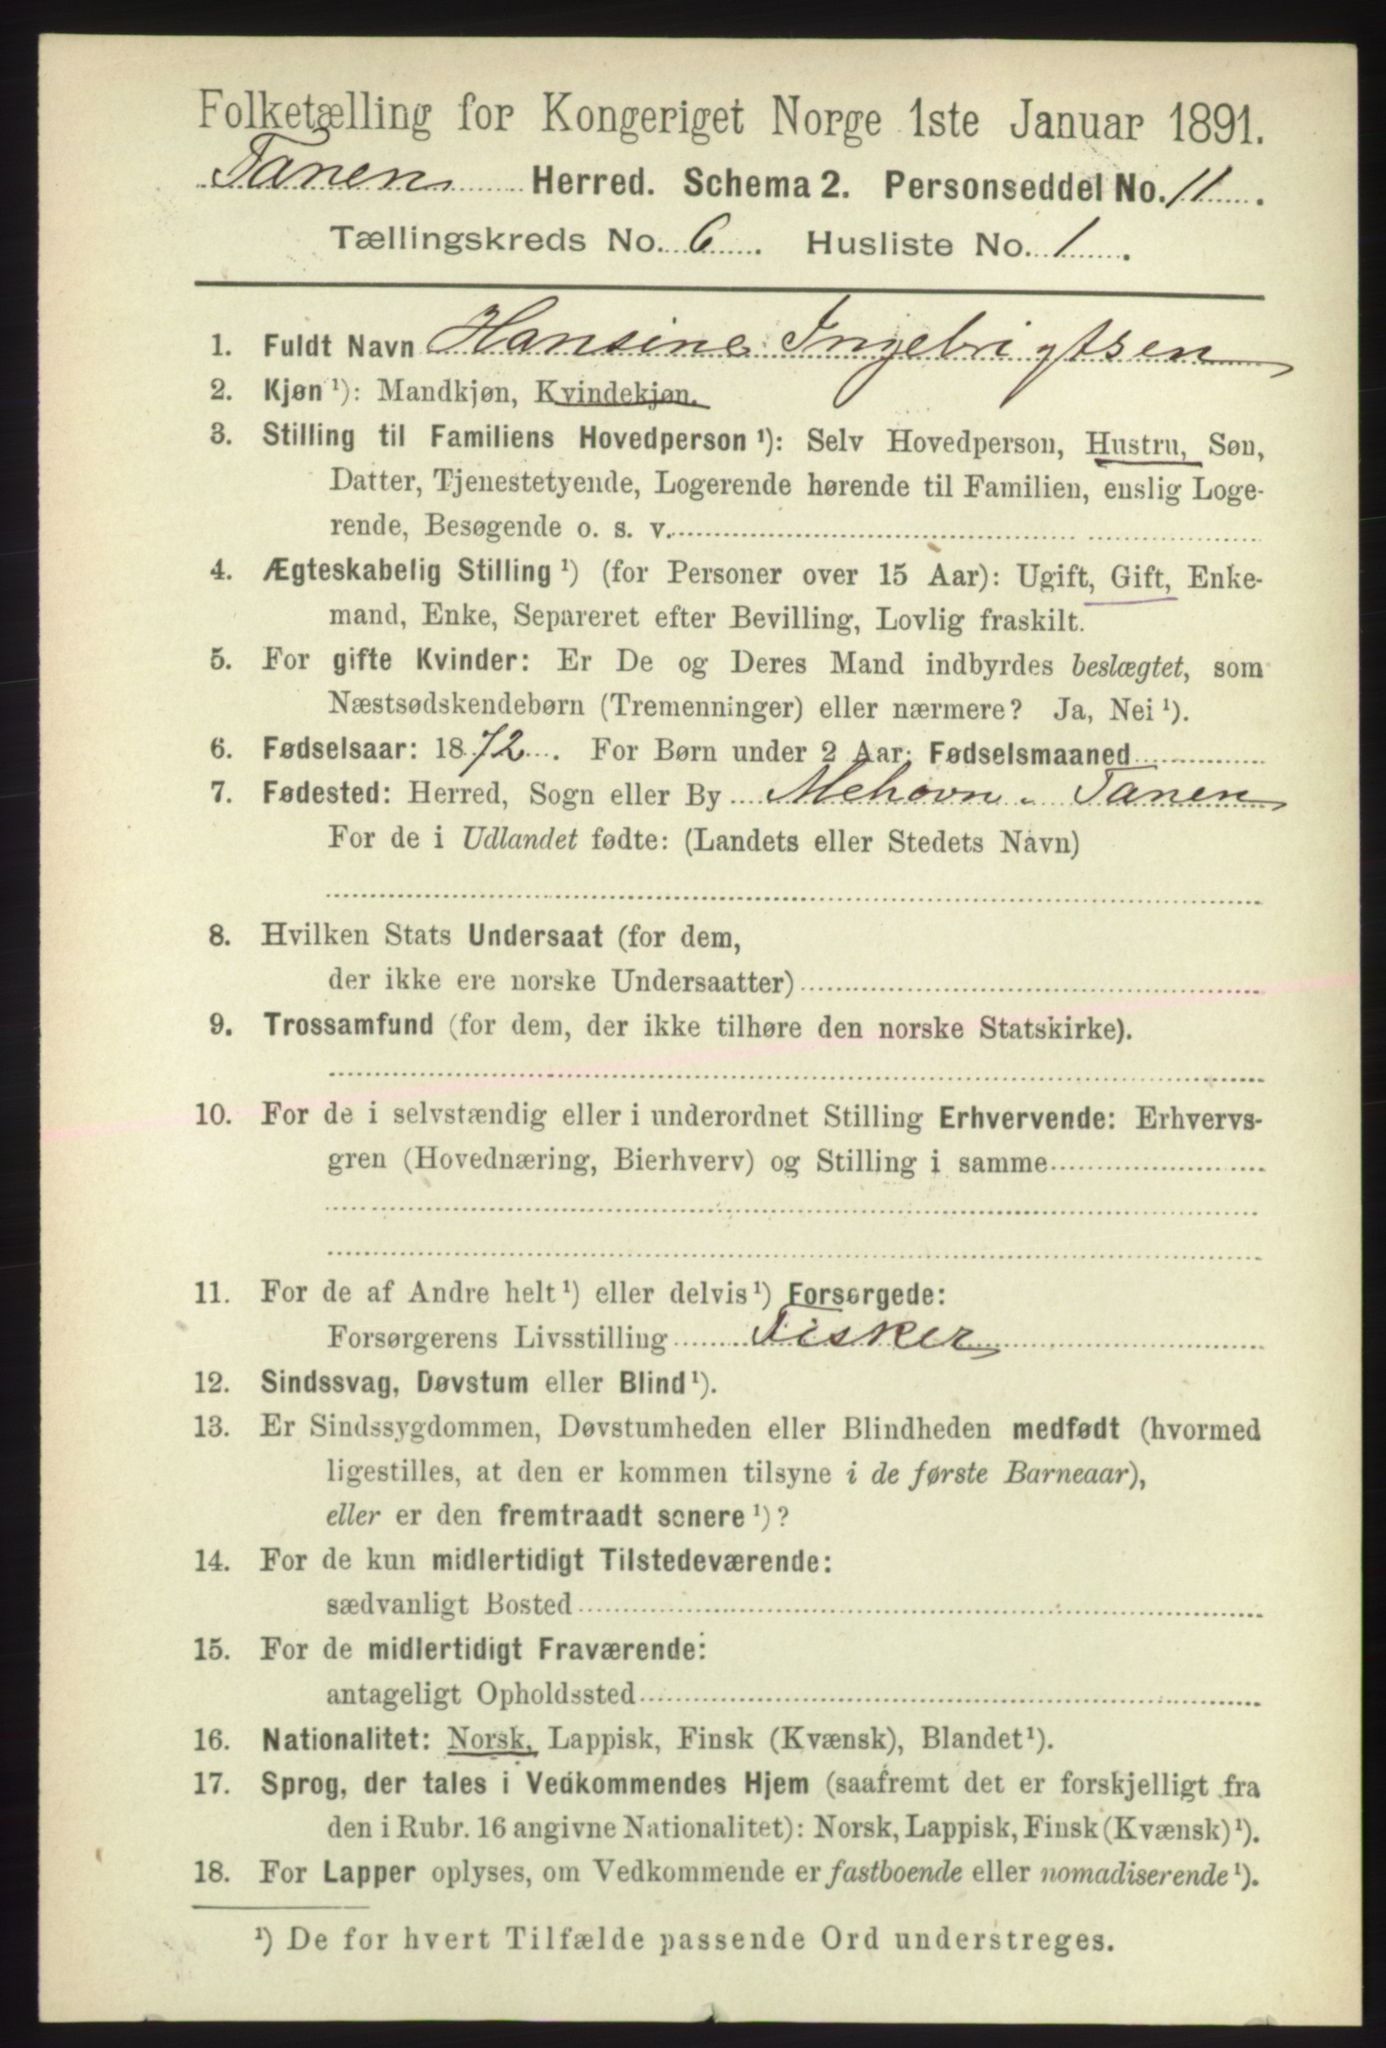 Folketælling for Kongeriget Norge 1ste Januar 1891.
Tanen Herred. Schema 2. Personseddel No. 11.
Tællingskreds No. 6. Husliste No. 1.
1. Fuldt Navn Hansine Ingebrigtsen
2. Kjøn¹): Mandkjøn, Kvindekjøn.
3. Stilling til Familiens Hovedperson¹): Selv Hovedperson, Hustru, Søn,
Datter, Tjenestetyende, Logerende hørende til Familien, enslig Loge-
rende, Besøgende o. s. v.
4. Ægteskabelig Stilling¹) (for Personer over 15 Aar): Ugift, Gift, Enke-
mand, Enke, Separeret efter Bevilling, Lovlig fraskilt.
5. For gifte Kvinder: Er De og Deres Mand indbyrdes beslægtet, som
Næstsødskendebørn (Tremenninger) eller nærmere? Ja, Nei¹).
6. Fødselsaar: 1872. For Børn under 2 Aar: Fødselsmaaned
7. Fødested: Herred, Sogn eller By Mehovn. Tanen
For de i Udlandet fødte: (Landets eller Stedets Navn)
8. Hvilken Stats Undersaat (for dem,
der ikke ere norske Undersaatter)
9. Trossamfund (for dem, der ikke tilhøre den norske Statskirke).
10. For de i selvstændig eller i underordnet Stilling Erhvervende: Erhvervs-
gren (Hovednæring, Bierhverv) og Stilling i samme
11. For de af Andre helt¹) eller delvis¹) Forsørgede:
Forsørgerens Livsstilling Fisker
12. Sindssvag, Døvstum eller Blind¹).
13. Er Sindssygdommen, Døvstumheden eller Blindheden medfødt (hvormed
ligestilles, at den er kommen tilsyne i de første Barneaar),
eller er den fremtraadt senere¹)?
14. For de kun midlertidigt Tilstedeværende:
sædvanligt Bosted
15. For de midlertidigt Fraværende:
antageligt Opholdssted
16. Nationalitet: Norsk, Lappisk, Finsk (Kvænsk), Blandet¹).
17. Sprog, der tales i Vedkommendes Hjem (saafremt det er forskjelligt fra
den i Rubr. 16 angivne Nationalitet): Norsk, Lappisk, Finsk (Kvænsk)¹).
18. For Lapper oplyses, om Vedkommende er fastboende eller nomadiserende¹).
¹) De for hvert Tilfælde passende Ord understreges.